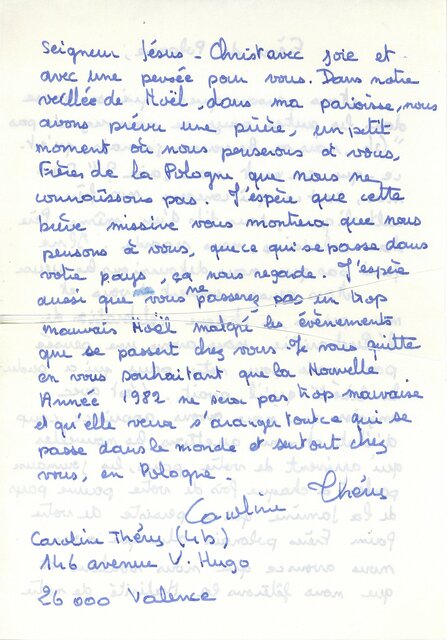 Seigneur Jésus-Christ avec joie et
avec une pensée pour vous. Dans notre
veillée de Noël, dans ma paroisse, nous
avons prévu une prière, un petit
moment où nous penserons à vous,
Frères de la Pologne que nous ne
connaissons pas. J'espère que cette
brève missive vous montrera que nous
pensons à vous, que ce qui se passe dans
votre pays, ça nous regarde. J'espère
aussi que vous ne passerez pas un trop
mauvais Noël malgré les évènements
que se passent chez vous. Je vous quitte
en vous souhaitant que la Nouvelle
Année 1982 ne sera pas trop mauvaise
et qu'elle verra s'aranger tout ce qui se
passe dans le monde et surtout chez
vous, en Pologne.
Caroline Théris
Caroline Théris (4b)
146 avenue V. Hugo
26 000 Valence